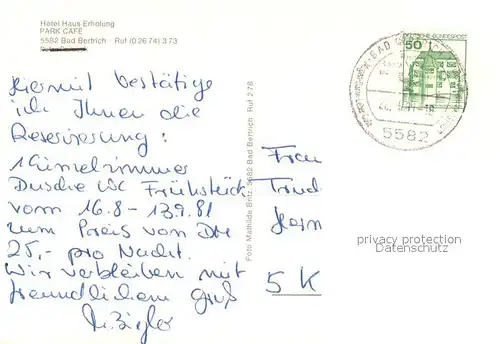 Hotel Haus Erholung
PARK CAFÉ
5582 Bad Bertrich · Ruf (0 26 74) 3 73
Hiermit bestätige
ich Ihnen die
Reservierung:
1 Einzelzimmer
Dusche WC Frühstück
vom 16.8 - 13.9.81
zum Preis von DM
25,- pro Nacht.
Wir verbleiben mit
freundlichem Gruß
M. Ziegler
Foto Mathilde Britz, 5582 Bad Bertrich Ruf 278
Frau
Trud
5 K
50
DEUTSCHE BUNDESPOST
BAD
5582
privacy protection
Datenschutz